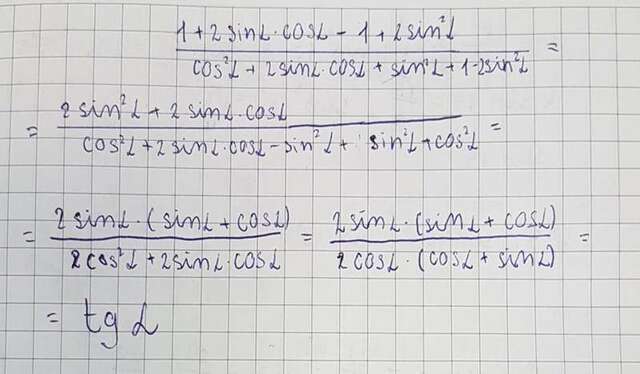 (1 + 2 sinα · cosα − 1 + 2 sin²α) / (cos²α + 2 sinα · cosα + sin²α + 1 − 2sin²α) =
= (2 sin²α + 2 sinα · cosα) / (cos²α + 2 sinα · cosα − sin²α + sin²α + cos²α) =
= (2 sinα · (sinα + cosα)) / (2 cos²α + 2 sinα · cosα) = (2 sinα · (sinα + cosα)) / (2 cosα · (cosα + sinα)) =
= tg α